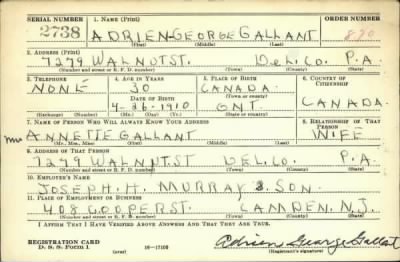 SERIAL NUMBER 1. NAME (Print) ORDER NUMBER
2738 ADRIEN-GEORGE GALLANT
(First) (Middle) (Last)
2. ADDRESS (Print)
7279 WALNUT ST. DEL.CO. P.A.
(Number and street or R. F. D. number) (Town) (County) (State)
3. TELEPHONE 4. AGE IN YEARS 5. PLACE OF BIRTH 6. COUNTRY OF CITIZENSHIP
NONE 30 CANADA
DATE OF BIRTH (Town or county)
4-26-1910 ONT. CANADA
(Exchange) (Number) (Mo.) (Day) (Yr.) (State or country)
7. NAME OF PERSON WHO WILL ALWAYS KNOW YOUR ADDRESS 8. RELATIONSHIP OF THAT PERSON
Mrs ANNETTE GALLANT WIFE
(Mr., Mrs., Miss) (First) (Middle) (Last)
9. ADDRESS OF THAT PERSON
7279 WALNUT.ST DEL.CO. P.A.
(Number and street or R. F. D. number) (Town) (County) (State)
10. EMPLOYER'S NAME
JOSEPH. H. MURRAY & SON.
11. PLACE OF EMPLOYMENT OR BUSINESS
408 COOPER ST. CAMDEN. N.J.
(Number and street or R. F. D. number) (Town) (County) (State)
I AFFIRM THAT I HAVE VERIFIED ABOVE ANSWERS AND THAT THEY ARE TRUE.
REGISTRATION CARD
D. S. S. Form 1 (over) 16—17105 Adrien George Gallant
(Registrant's signature)